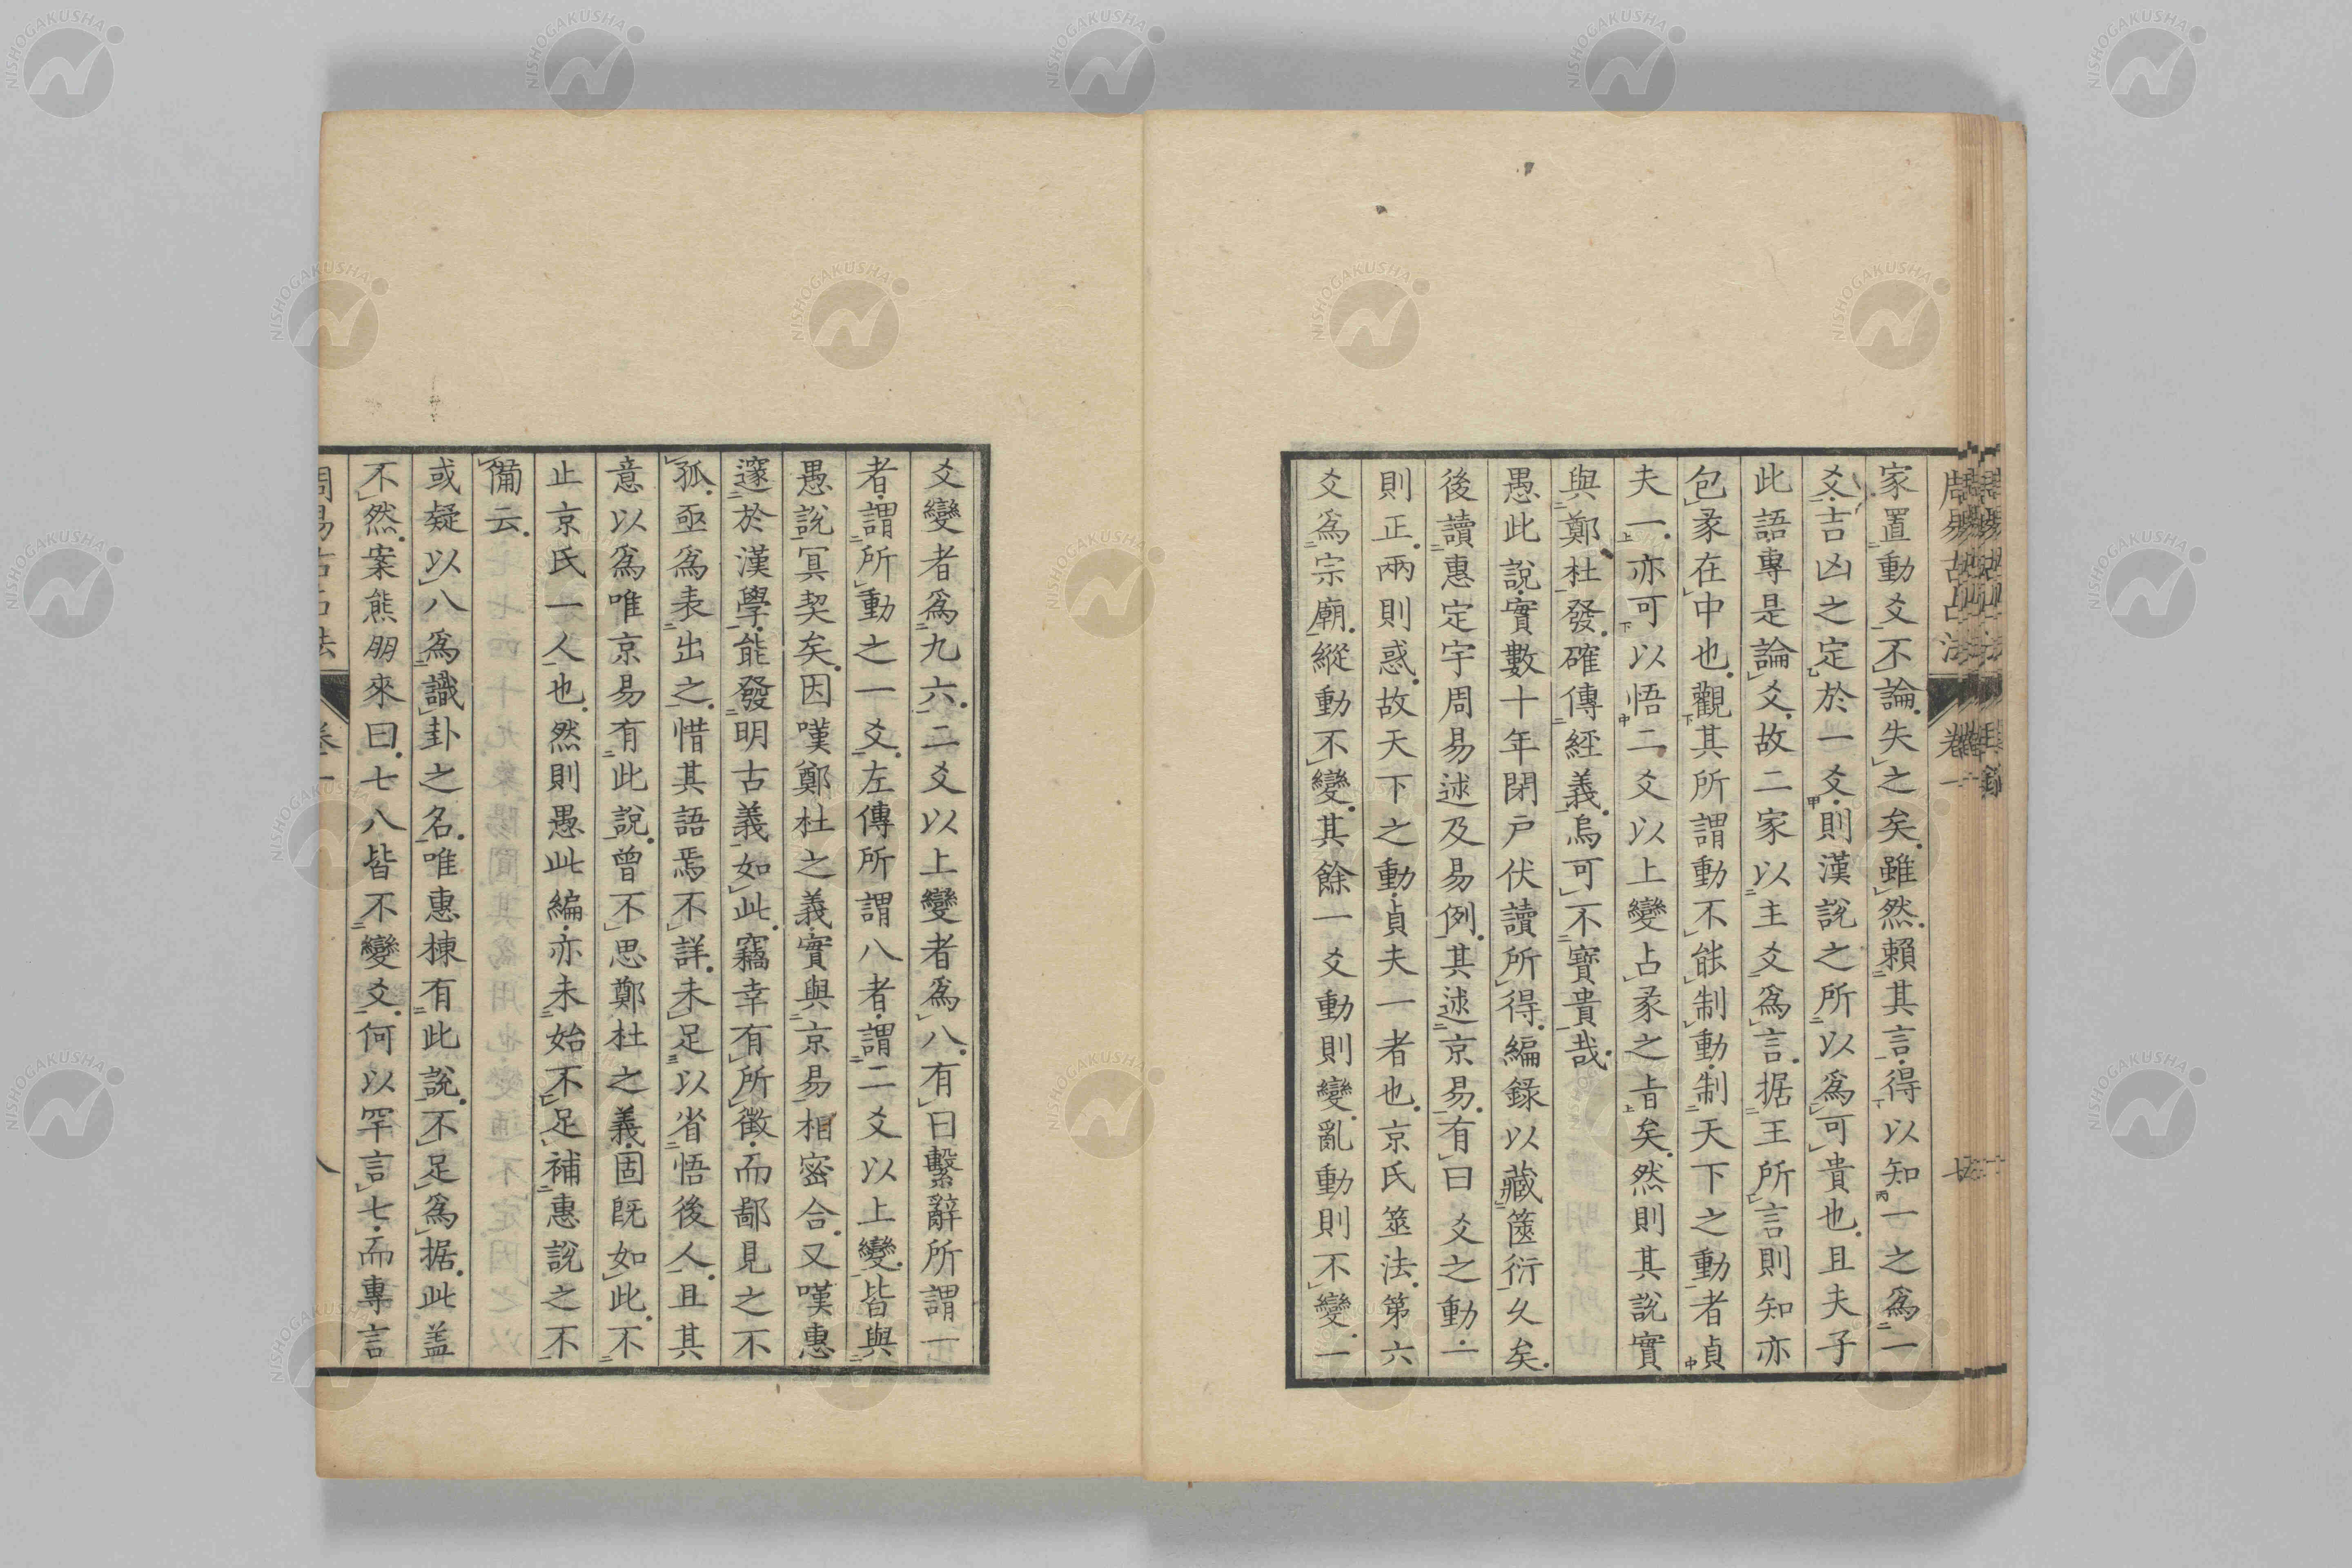 周易古占法 卷一 七
家置動爻不論失之矣雖然賴其言得以知一之爲一
爻吉凶之定於一爻則漢說之所以爲可貴也且夫子
此語專是論爻故二家以主爻爲言据王所言則知亦
包彖在中也觀其所謂動不能制動制天下之動者貞
夫一亦可以悟二爻以上變占彖之旨矣然則其說實
與鄭杜發確傳經義烏可不寶貴哉
愚此說實數十年閉戶伏讀所得編錄以藏篋衍久矣
後讀惠定宇周易述及易例其述京易有曰爻之動一
則正兩則惑故天下之動貞夫一者也京氏筮法第六
爻爲宗廟縱動不變其餘一爻動則變亂動則不變一
爻變者爲九六二爻以上變者爲八有曰繫辭所謂一
者謂所動之一爻左傳所謂八者謂二爻以上變皆與
愚說冥契矣因嘆鄭杜之義實與京易相密合又嘆惠
邃於漢學能發明古義如此竊幸有所徵而鄙見之不
孤亟爲表出之惜其語焉不詳未足以省悟後人且其
意以爲唯京易有此說曾不思鄭杜之義固旣如此不
止京氏一人也然則愚此編亦未始不足補惠說之不
備云
或疑以八爲識卦之名唯惠棟有此說不足爲据此盖
不然案熊朋來曰七八皆不變爻何以罕言七而專言
周易古占法 卷一 八
NISHOGAKUSHA